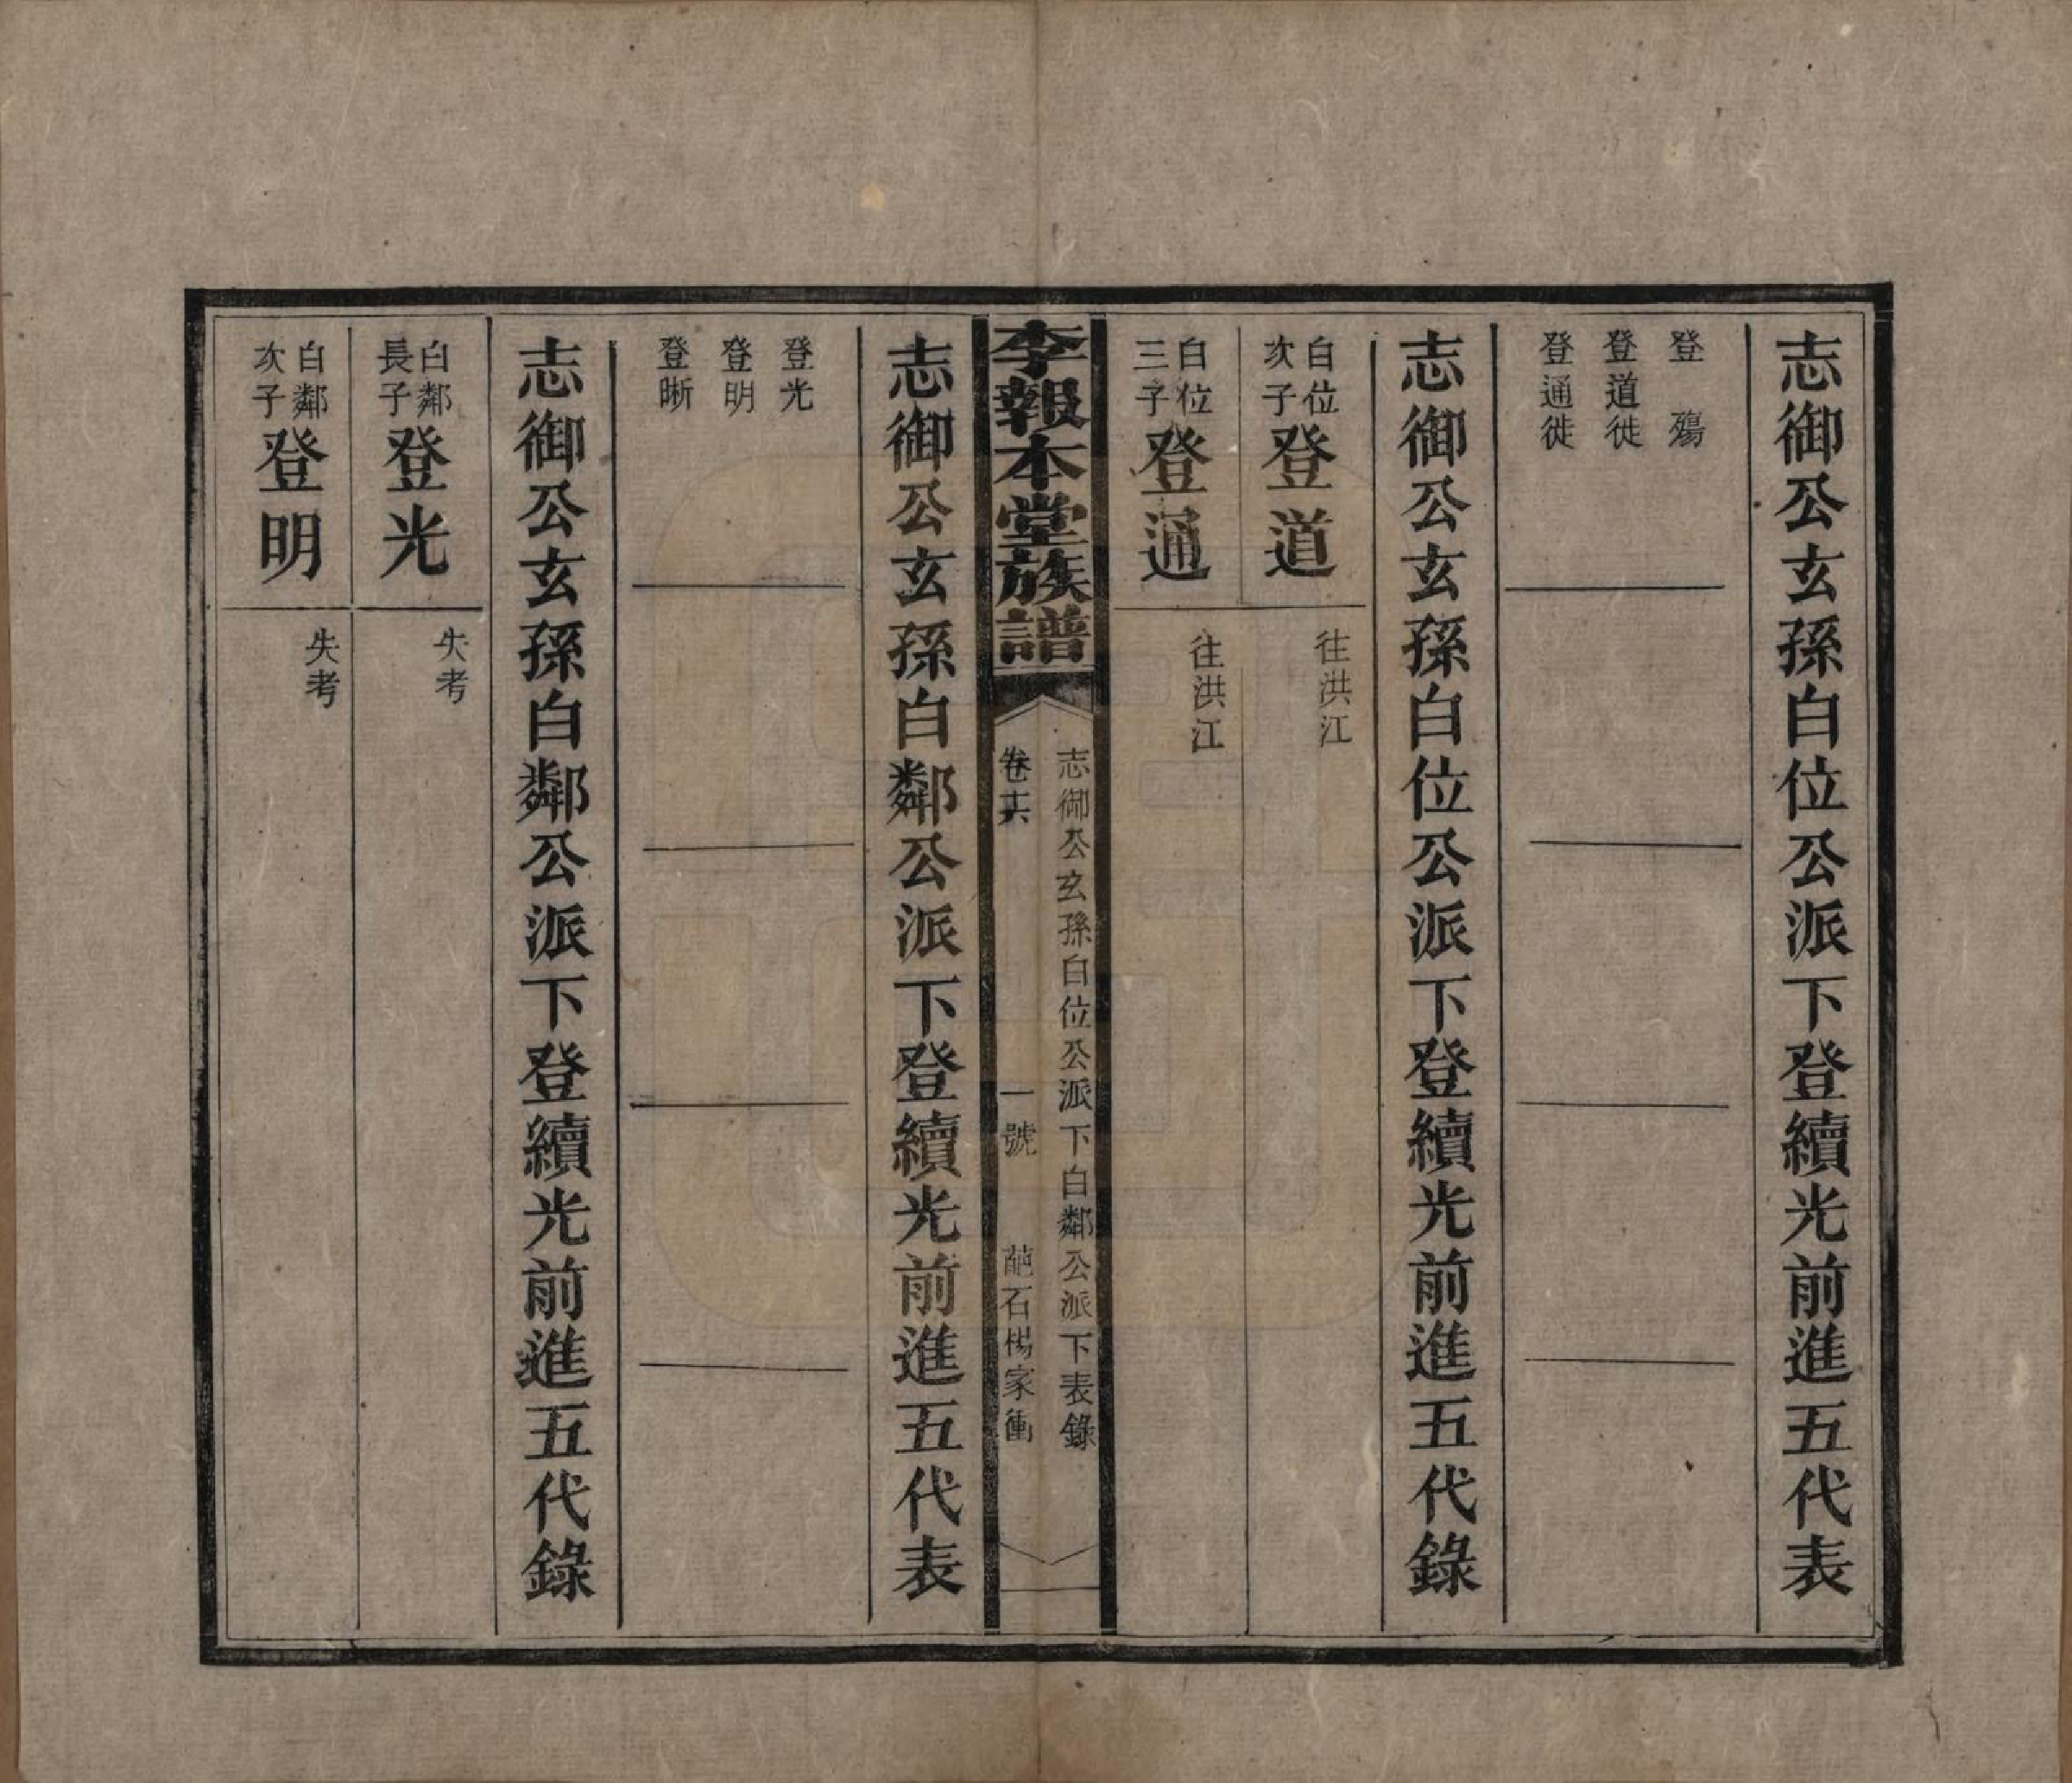 志御公玄孫白位公派下登續光前進五代表
登　殤
登道徙
登通徙
志御公玄孫白位公派下登續光前進五代錄
白位
次子
登道
往洪江
白位
三子
登通
往洪江
李報本堂族譜
志御公玄孫白位公派下白鄰公派下表錄
卷十六
一號
石楊家衝
志御公玄孫白鄰公派下登續光前進五代表
登光
登明
登晰
志御公玄孫白鄰公派下登續光前進五代錄
白鄰
長子
登光
失考
白鄰
次子
登明
失考